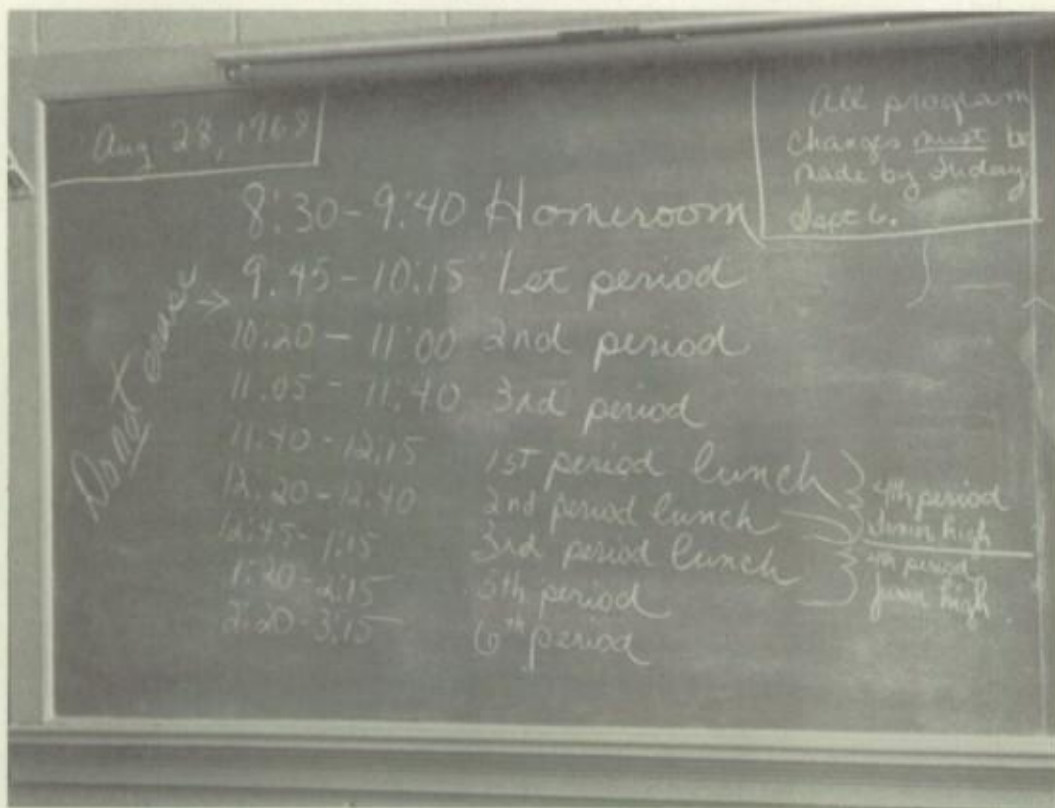 Aug 28, 1968
All program
changes must be
made by Friday
Sept 6.
8:30-9:40 Homeroom
9:45-10:15 1st period
10:20-11:00 2nd period
11:05-11:40 3rd period
11:40-12:15 1st period lunch
12:20-12:40 2nd period lunch
12:45-1:15 3rd period lunch
1:20-2:15 5th period
2:20-3:15 6th period
4th period
high
4th period
junior high
Do not erase